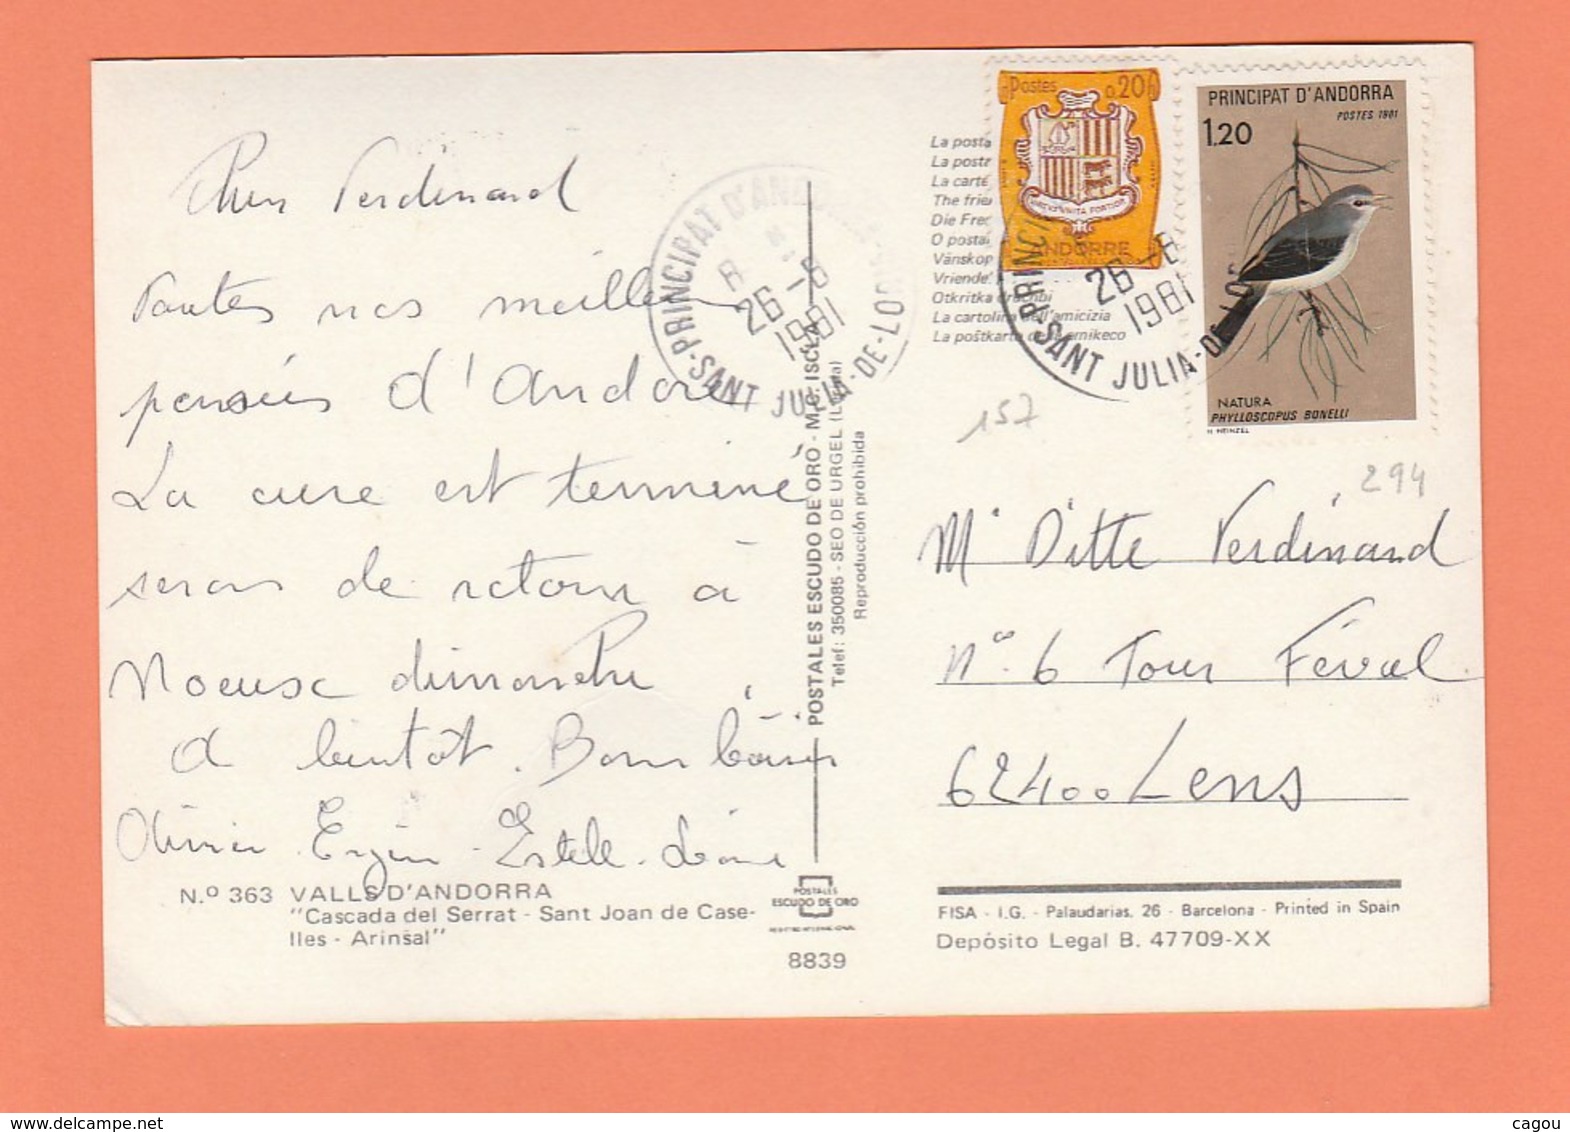 Cher Ferdinand
Toutes nos meilleures
pensées d'Andorre
La cure est terminé
serons de retour à
Noeux dimanche
A bientôt. Bons baisers
Olivier - Estelle -
N.º 363 VALLS D'ANDORRA
"Cascada del Serrat - Sant Joan de Case-
lles - Arinsal"
POSTALES
ESCUDO DE ORO
8839
POSTALES ESCUDO DE ORO - M.C. ISCLA
Telef: 350085 - SEO DE URGEL (Lérida)
Reproducción prohibida
PRINCIPAT D'ANDORRA
26 -8
1981
SANT JULIA-DE-LORIA
La posta
La postr
La carte
The frie
Die Fre
O postal
Vänskop
Vriende
Otkritka druchbi
La cartolina dell'amicizia
La poštkarto de la amikeco
Postes 0.20
ANDORRE
PRINCIPAT D'ANDORRA
POSTES 1981
1.20
NATURA
PHYLLOSCOPUS BONELLI
H. HEINZEL
PRINCI
26 -8
1981
SANT JULIA-DE-LO
157
294
Mr Ditte Ferdinand
N° 6 Tour Féval
62400 Lens
FISA - I.G. - Palaudarias, 26 - Barcelona - Printed in Spain
Depósito Legal B. 47709-XX
cagou